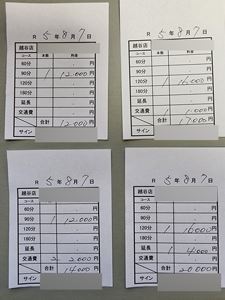 R 5年 8月 7日
越谷店
コース 本数 料金
60分 円
90分 1 12,000円
120分 円
180分 円
延長 円
交通費 円
合計 12,000円
サイン
R 5年 8月 7日
コース 本数 料金
60分 円
90分 円
120分 1 16,000円
180分 円
延長 円
交通費 1 1,000円
合計 17,000円
サイン
R 5年 8月 7日
越谷店
コース
60分 円
90分 1 12,000円
120分 円
180分 円
延長 円
交通費 2 2,000円
合計 14,000円
サイン
R 5年 8月 7日
越谷店
コース
60分 円
90分 円
120分 1 16,000円
180分 円
延長 1 4,000円
交通費 円
合計 20,000円
サイン